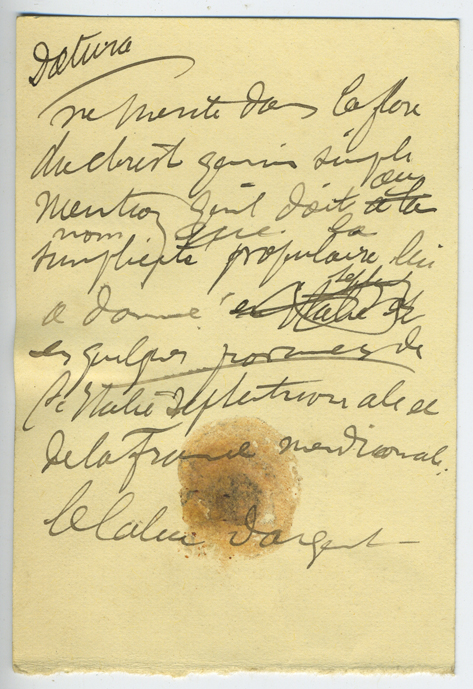 Datura
ne merite dans la flore
du christ qu'une simple
mention qu'il doit au
nom que la
simplicité populaire lui
a donné
en quelques provinces de
l'Italie septentrionale et
de la France meridionale.
le Calice d'argent